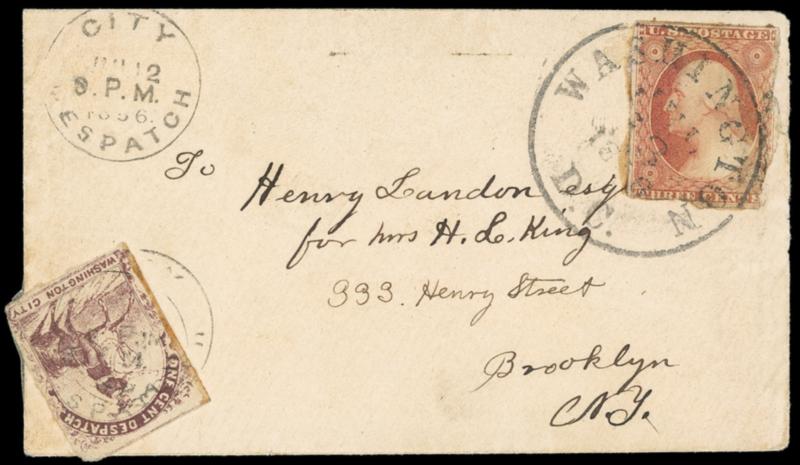 CITY
12
8. P. M.
1856.
DESPATCH
WASHINGTON
D.C.
U.S. POSTAGE
THREE CENTS
To Henry Landon esq
for Mrs H. L. King
333. Henry Street
Brooklyn
N.Y.
WASHINGTON CITY
ONE CENT DESPATCH